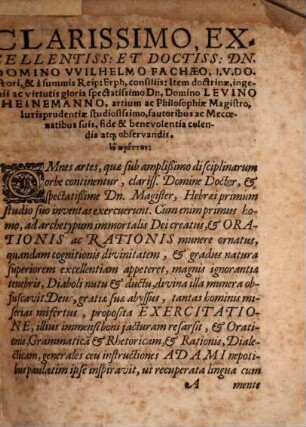 CLARISSIMO, EX-
CELLENTISS: ET DOCTISS: DN.
DOMINO VVILHELMO FACHÆO, I.V. DO-
ctori, & à summis Reip: Erph, consiliis: Item doctrinæ, inge-
nii ac virtutis gloria spectatissimo Dn, Domino LEVINO
HEINEMANNO, artium ac Philosophiæ Magistro,
Iurisprudentiæ studiosissimo, fautoribus ac Mecœ-
natibus suis, fide & benevolentia colen-
dis atq; observandis.
OMnes artes, quæ sub amplißimo disciplinarum
orbe continentur, clariss. Domine Doctor, &
spectatißime Dn. Magister, Hebræi primum
studio suo inventas exercuerunt. Cum enim primus ho-
mo, ad archetypum immortalis Dei creatus, & ORA-
TIONIS ac RATIONIS munere ornatus,
quandam cognitionis divinitatem, & gradus natura
superiorem excellentiam appeteret, magnus ignorantiæ
tenebris, Diaboli nutu & ductu, divina illa munera ob-
fuscavit. Deus, gratiæ suæ abyssus, tantas hominis mi-
serias misertus, proposita EXERCITATIO-
NE, illius immensi boni jacturam resarsit, & Oratio-
nis, Grammaticã & Rhetoricam, & Rationis, Diale-
cticam, generales ceu instructiones ADAMI nepoti-
bus paulatim ipse inspiravit, ut recuperata lingua cum
A mente